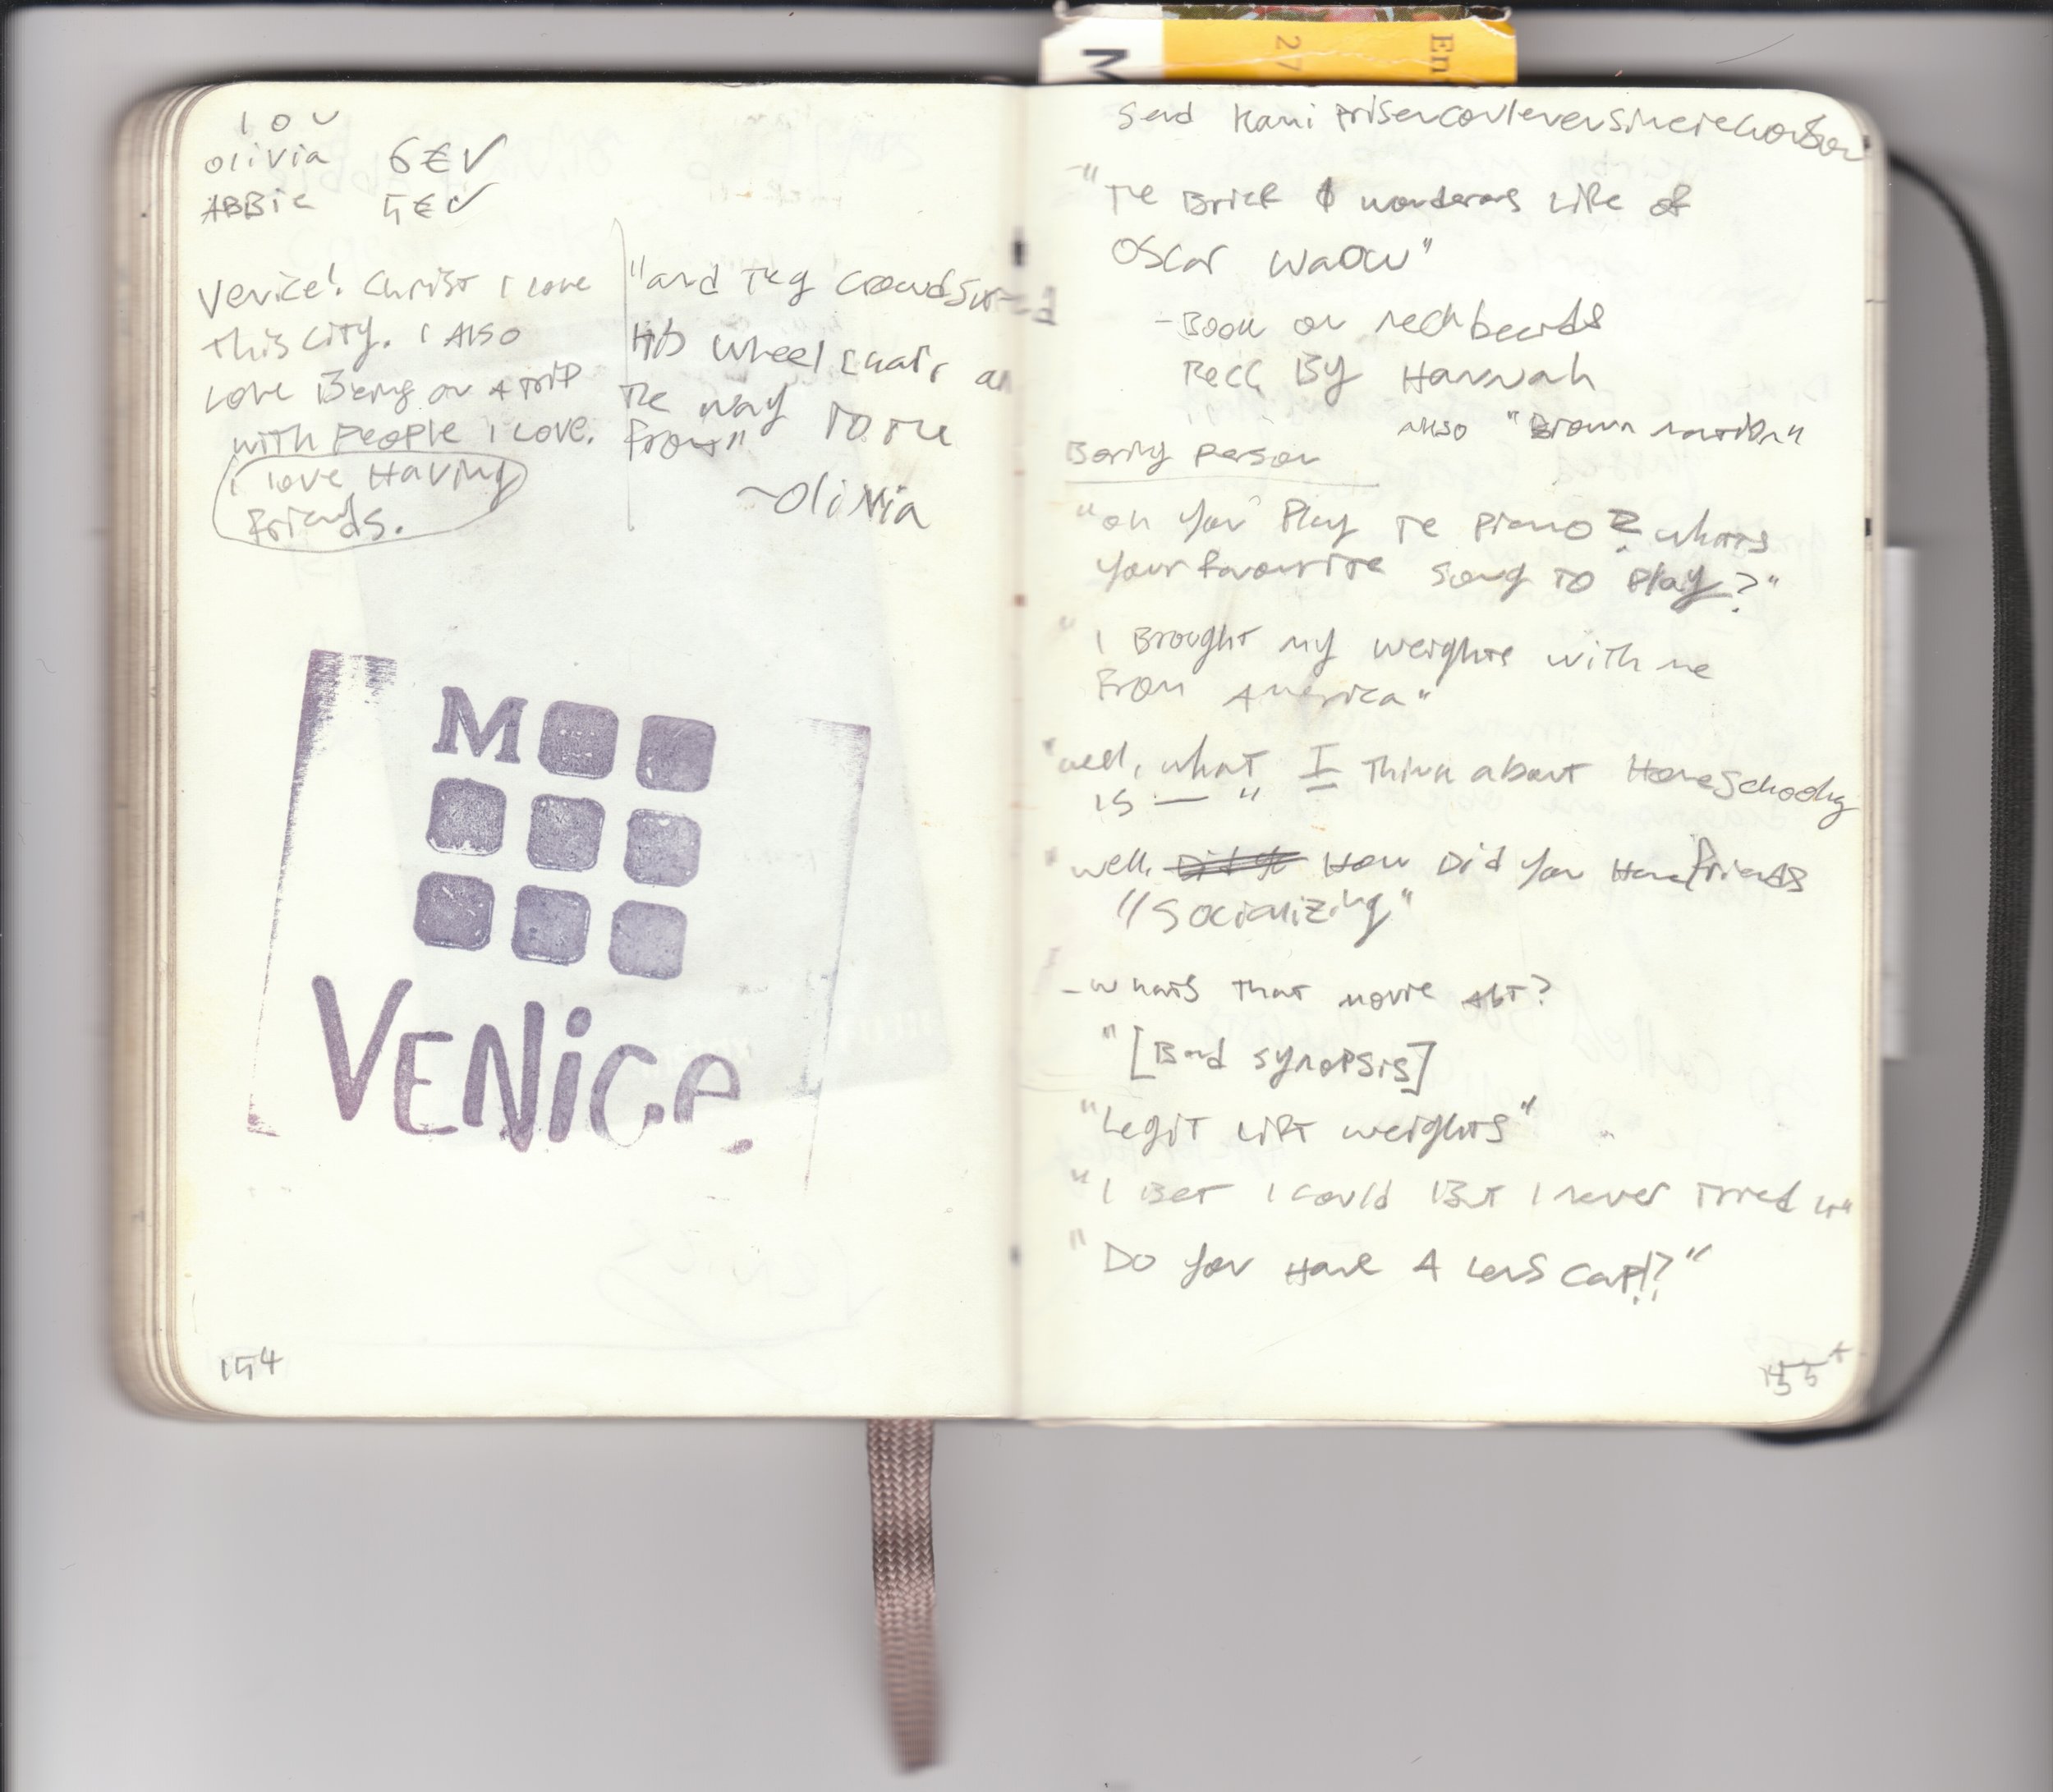 I O U
Olivia 6€ ✓
ABBie 5€ ✓
Venice! Christ I love
this city. I Also
Love Being on A trip
with People I Love.
I love Having
Friends.
"and they crowdsurfed
His wheelchair all
The way to the
Front"
~Olivia
M
VENiCe
154
Send Kami
"The Brief & wonderous Life of
Oscar Waow"
- Book on neckbeards
Recc By Hannah
Also "Brown nation"
Boring person
"oh you Play The piano? whats
your favourite song to Play?"
"I Brought my weights with me
From America"
"well, what I Think about Homeschooling
is — "
"well, How Did you Have friends
"Socializing"
- whats that movie abt?
"[Bad synopsis]
"Legit Lift weights"
"I Bet I could But I never tried it"
"Do you Have A Lens Cap!?"
155
En
27
M